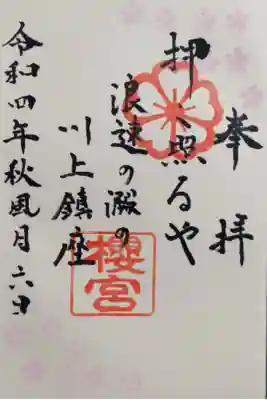 奉拝
押し照るや
浪速の瀬の
川上鎮座
櫻宮
令和四年秋風月六日